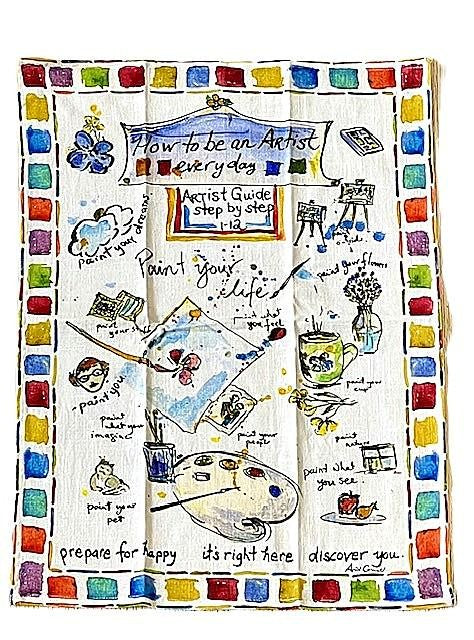 How to be an Artist
everyday
ARTIST GUIDE
step by step
1-12
paint your dreams
Paint your
life
paint your flowers
paint your stuff
paint what
you feel
paint you
paint your
cup
paint
what you
imagine
paint your
people
paint
nature
paint what
you see.
paint your
pet
prepare for happy it's right here discover you.